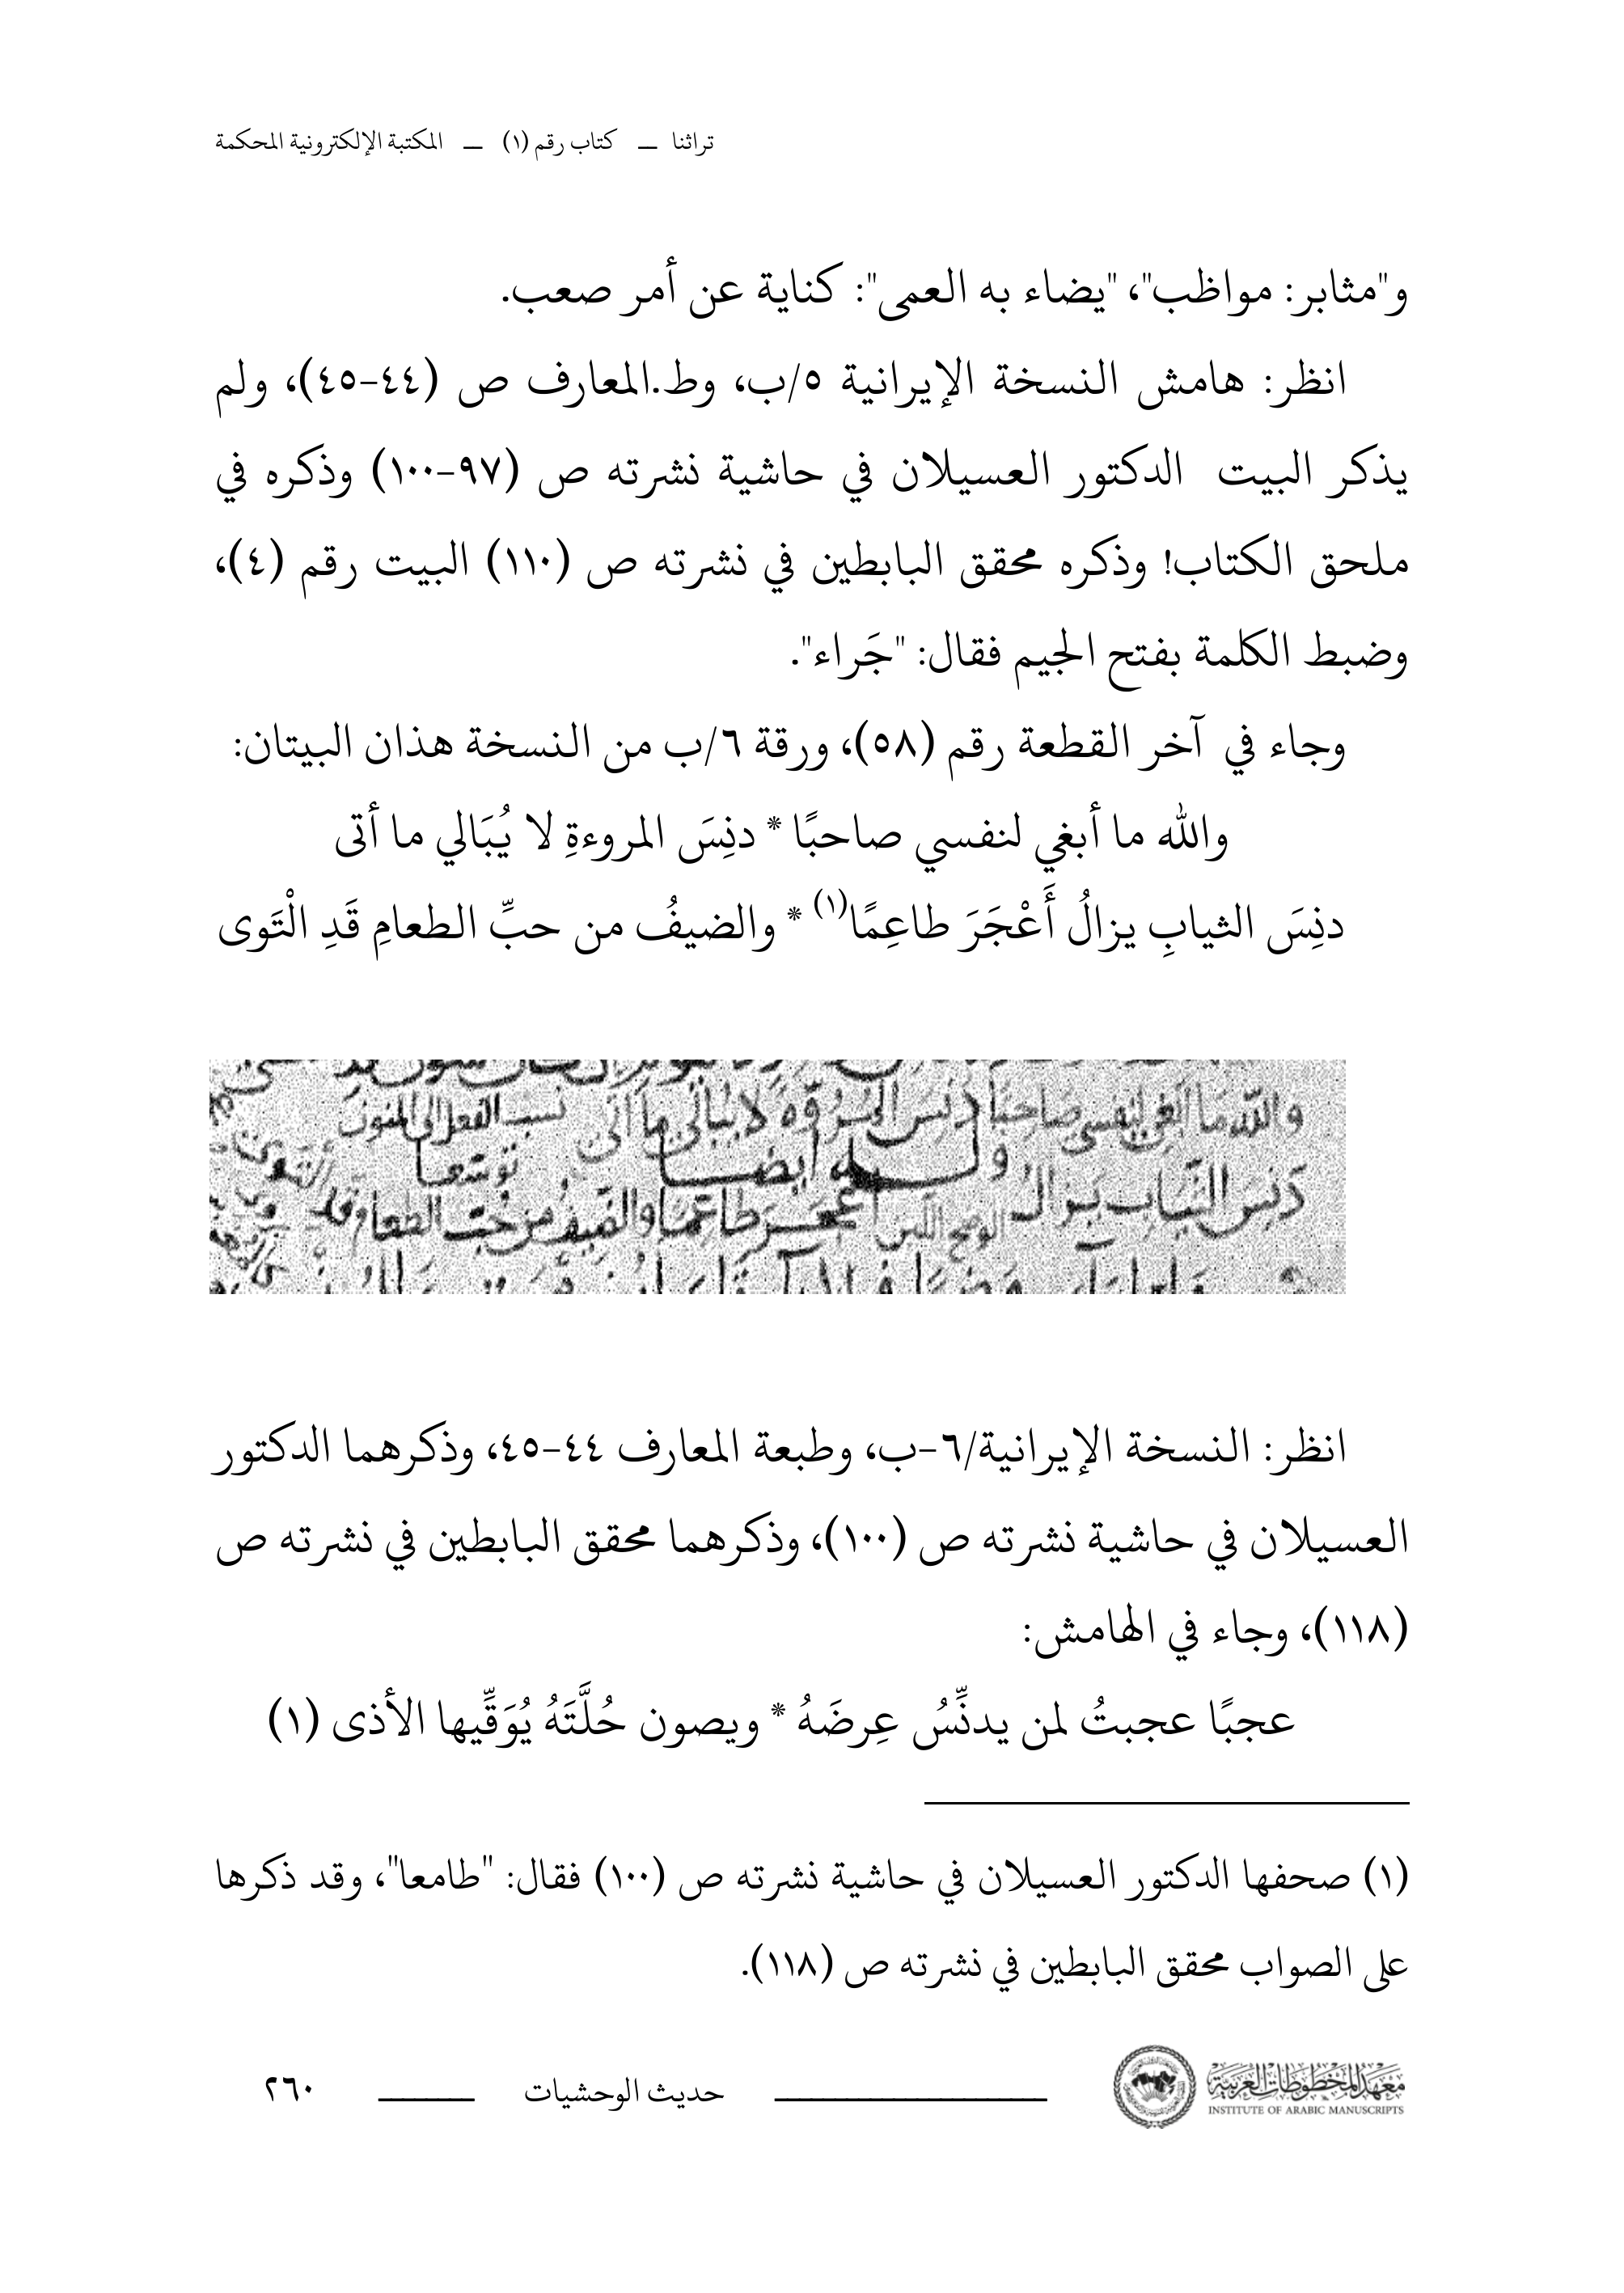 تراثنا — كتاب رقم (١) — المكتبة الإلكترونية المحكمة
و"مثابر: مواظب"، "يضاء به العمى": كناية عن أمر صعب.
انظر: هامش النسخة الإيرانية ٥/ب، وط.المعارف ص (٤٤-٤٥)، ولم
يذكر البيت الدكتور العسيلان في حاشية نشرته ص (٩٧-١٠٠) وذكره في
ملحق الكتاب! وذكره محقق البابطين في نشرته ص (١١٠) البيت رقم (٤)،
وضبط الكلمة بفتح الجيم فقال: "جَراء".
وجاء في آخر القطعة رقم (٥٨)، ورقة ٦/ب من النسخة هذان البيتان:
والله ما أبغي لنفسي صاحبًا * دنِسَ المروءةِ لا يُبَالي ما أتى
دنِسَ الثيابِ يزالُ أَعْجَرَ طاعِمًا(١) * والضيفُ من حبِّ الطعامِ قَدِ الْتَوى
والله ما أبغي لنفسي صاحبًا دنس المروة لا يبالي ما أتى نسب الفعل إلى
وله أيضا توسعا
دنس الثياب يزال أعجر طاعمًا والضيف من حب الطعام قد التوى
انظر: النسخة الإيرانية/٦-ب، وطبعة المعارف ٤٤-٤٥، وذكرهما الدكتور
العسيلان في حاشية نشرته ص (١٠٠)، وذكرهما محقق البابطين في نشرته ص
(١١٨)، وجاء في الهامش:
عجبًا عجبتُ لمن يدنِّسُ عِرضَهُ * ويصون حُلَّتَهُ يُوَقِّيها الأذى (١)
(١) صحفها الدكتور العسيلان في حاشية نشرته ص (١٠٠) فقال: "طامعا"، وقد ذكرها
على الصواب محقق البابطين في نشرته ص (١١٨).
معهد المخطوطات العربية
INSTITUTE OF ARABIC MANUSCRIPTS
حديث الوحشيات
٢٦٠